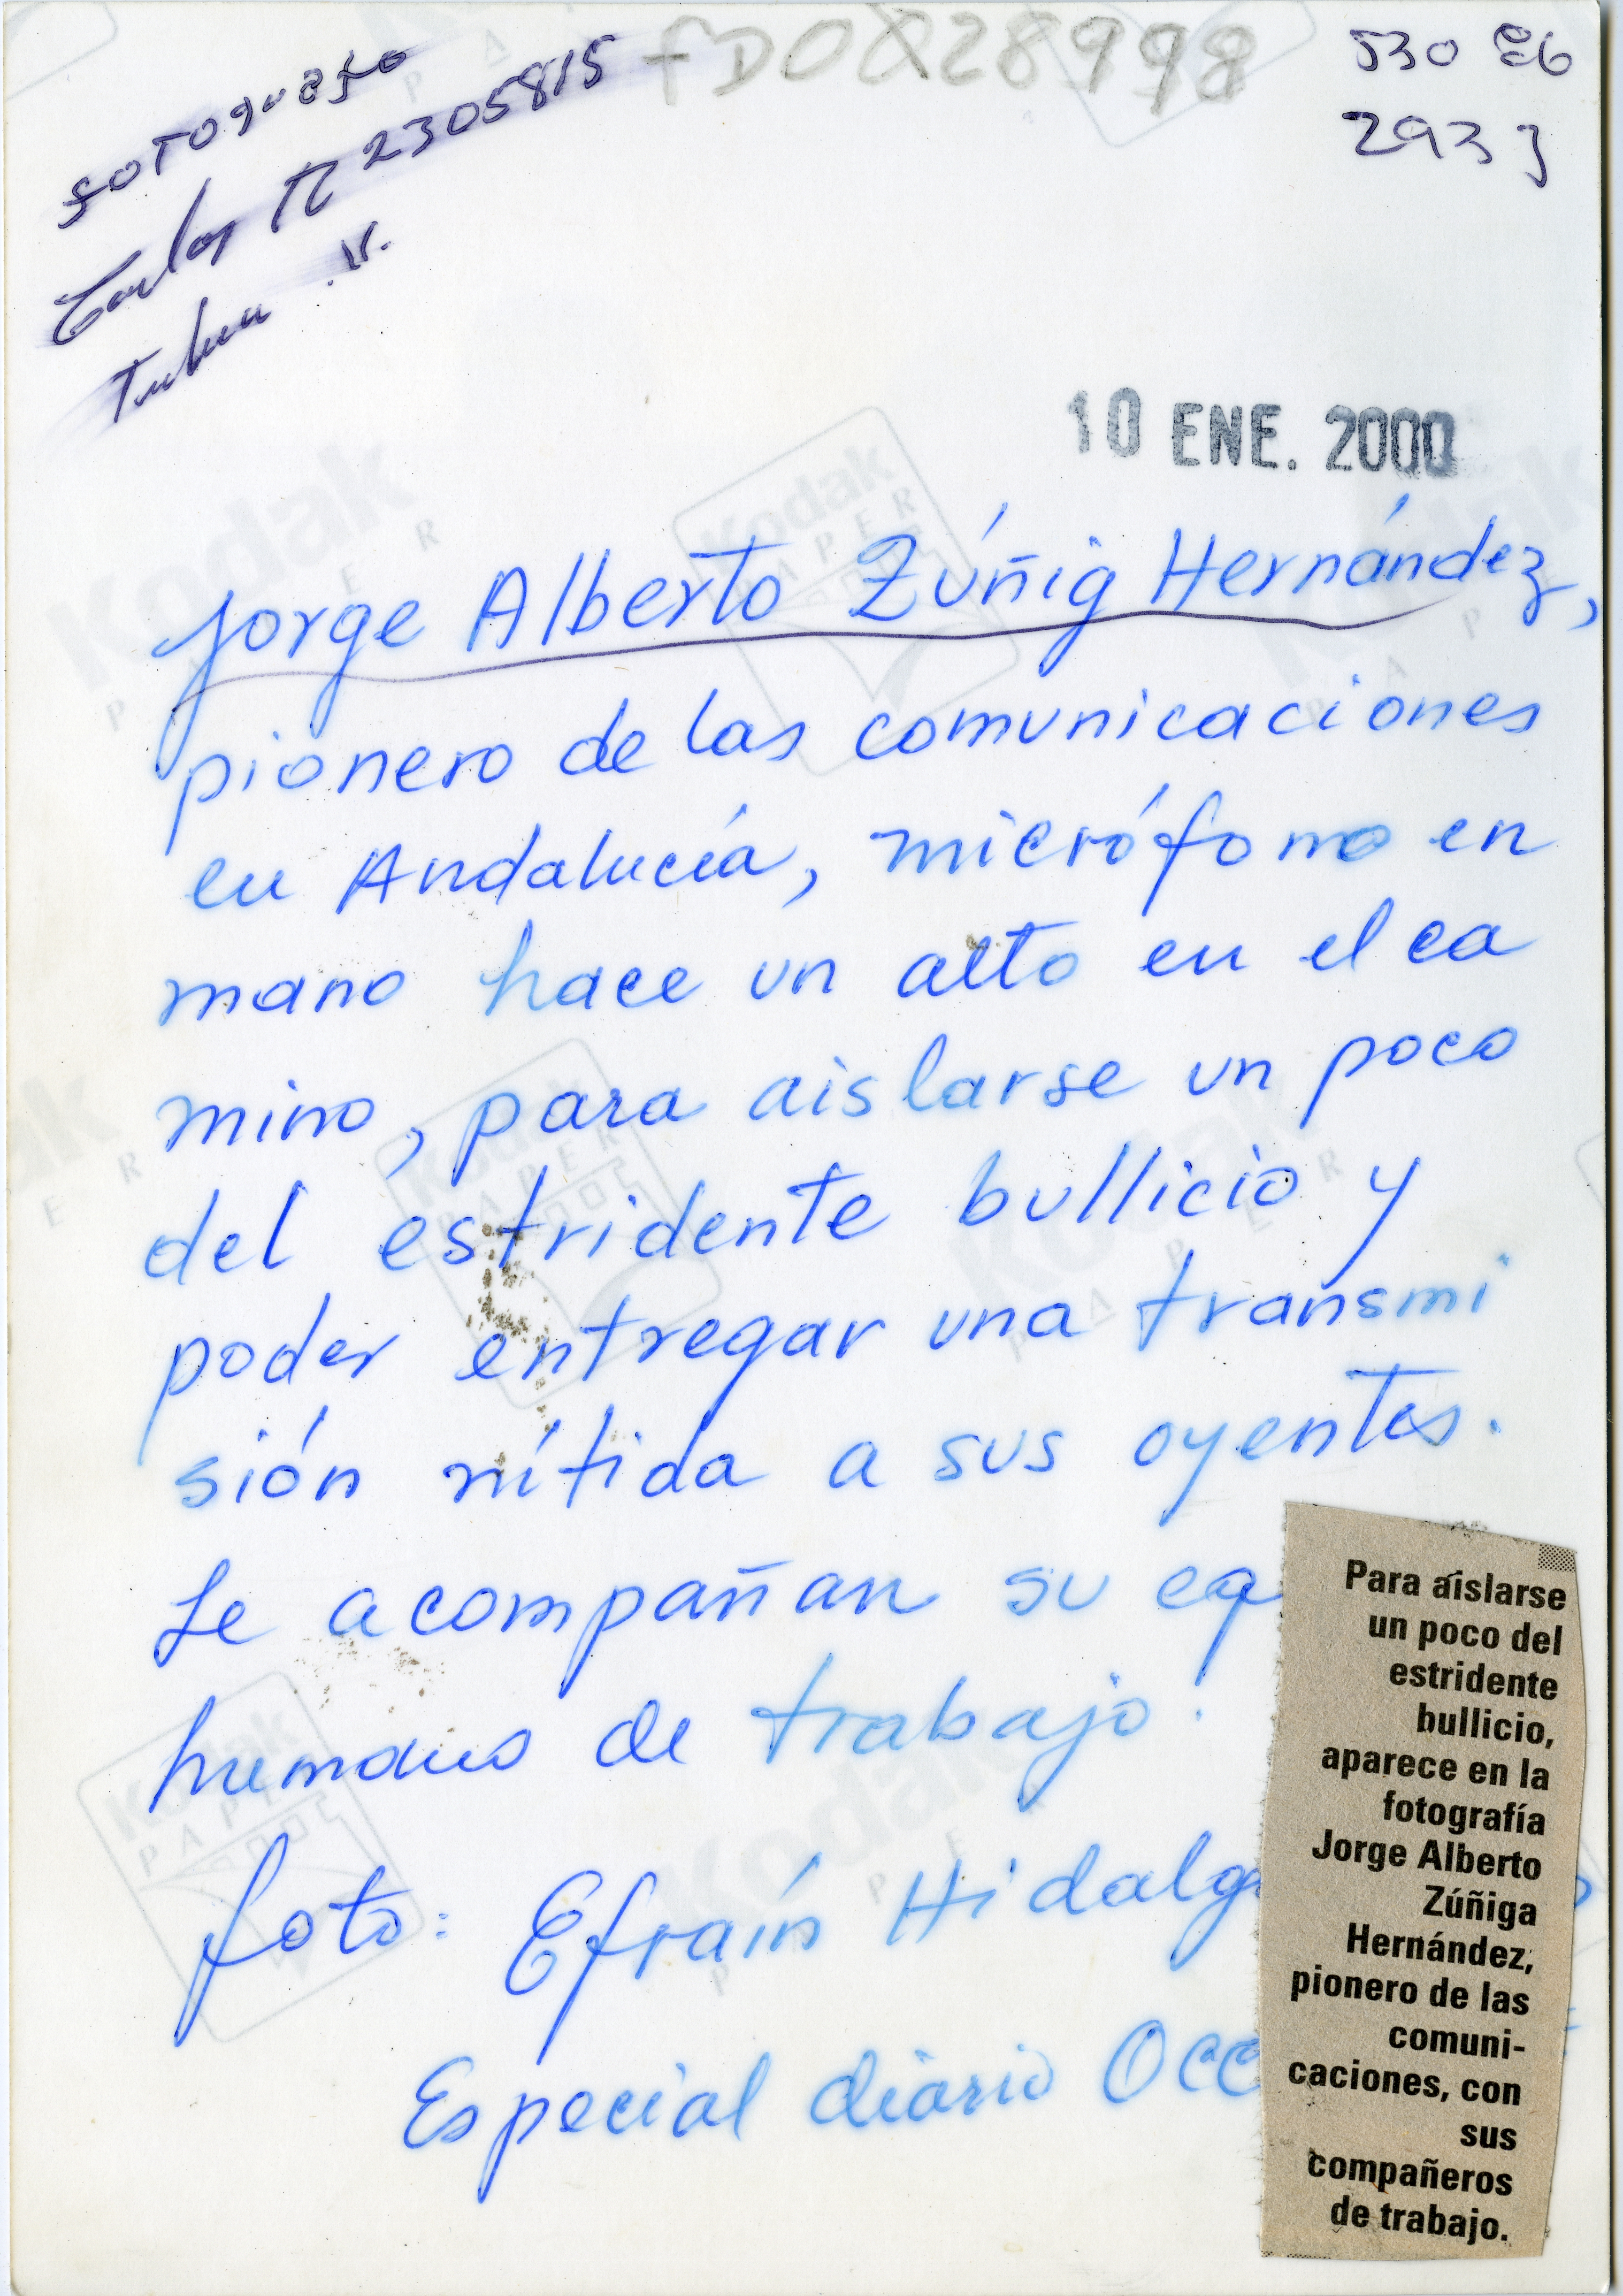 FDOX28998
530 E6
2933
Carlos M 2305815
10 ENE. 2000
Jorge Alberto Zúñig Hernández,
pionero de las comunicaciones
en Andalucía, micrófono en
mano hace un alto en el ca
mino, para aislarse un poco
del estridente bullicio y
poder entregar una transmi
sión nítida a sus oyentes.
Le acompañan su eq
humano de trabajo.
foto: Efraín Hidalg
Especial diario Occ
Para aislarse
un poco del
estridente
bullicio,
aparece en la
fotografía
Jorge Alberto
Zúñiga
Hernández,
pionero de las
comuni-
caciones, con
sus
compañeros
de trabajo.
Kodak
PAPER